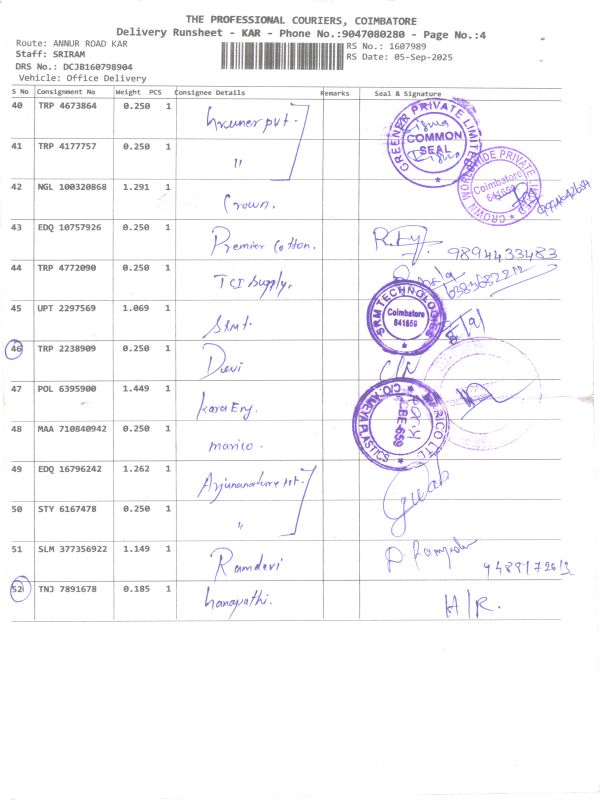 THE PROFESSIONAL COURIERS, COIMBATORE
Delivery Runsheet - KAR - Phone No.:9047080280 - Page No.:4
Route: ANNUR ROAD KAR
RS No.: 1607989
Staff: SRIRAM
RS Date: 05-Sep-2025
DRS No.: DCJB160798904
Vehicle: Office Delivery
S No Consignment No Weight PCS Consignee Details Remarks Seal & Signature
40 TRP 4673864 0.250 1 pvt. GREENER PRIVATE LIMITED COMMON SEAL
41 TRP 4177757 0.250 1 "
42 NGL 100320868 1.291 1 Crown. CROWN WORLDWIDE PRIVATE Coimbatore 641659
43 EDQ 10757926 0.250 1 Premier Cotton. 9894433483
44 TRP 4772090 0.250 1 TCI Supply. 6383682212
45 UPT 2297569 1.069 1 SRM TECHNOLOGIES Coimbatore 641659
46 TRP 2238909 0.250 1 Devi
47 POL 6395900 1.449 1 Kara Eng. C/O. AMEYA PLASTICS CBE-659
48 MAA 710840942 0.250 1 marico. RICO LTD.
49 EDQ 16796242 1.262 1
50 STY 6167478 0.250 1 "
51 SLM 377356922 1.149 1 Ramdevi
52 TNJ 7891678 0.185 1 H/R.